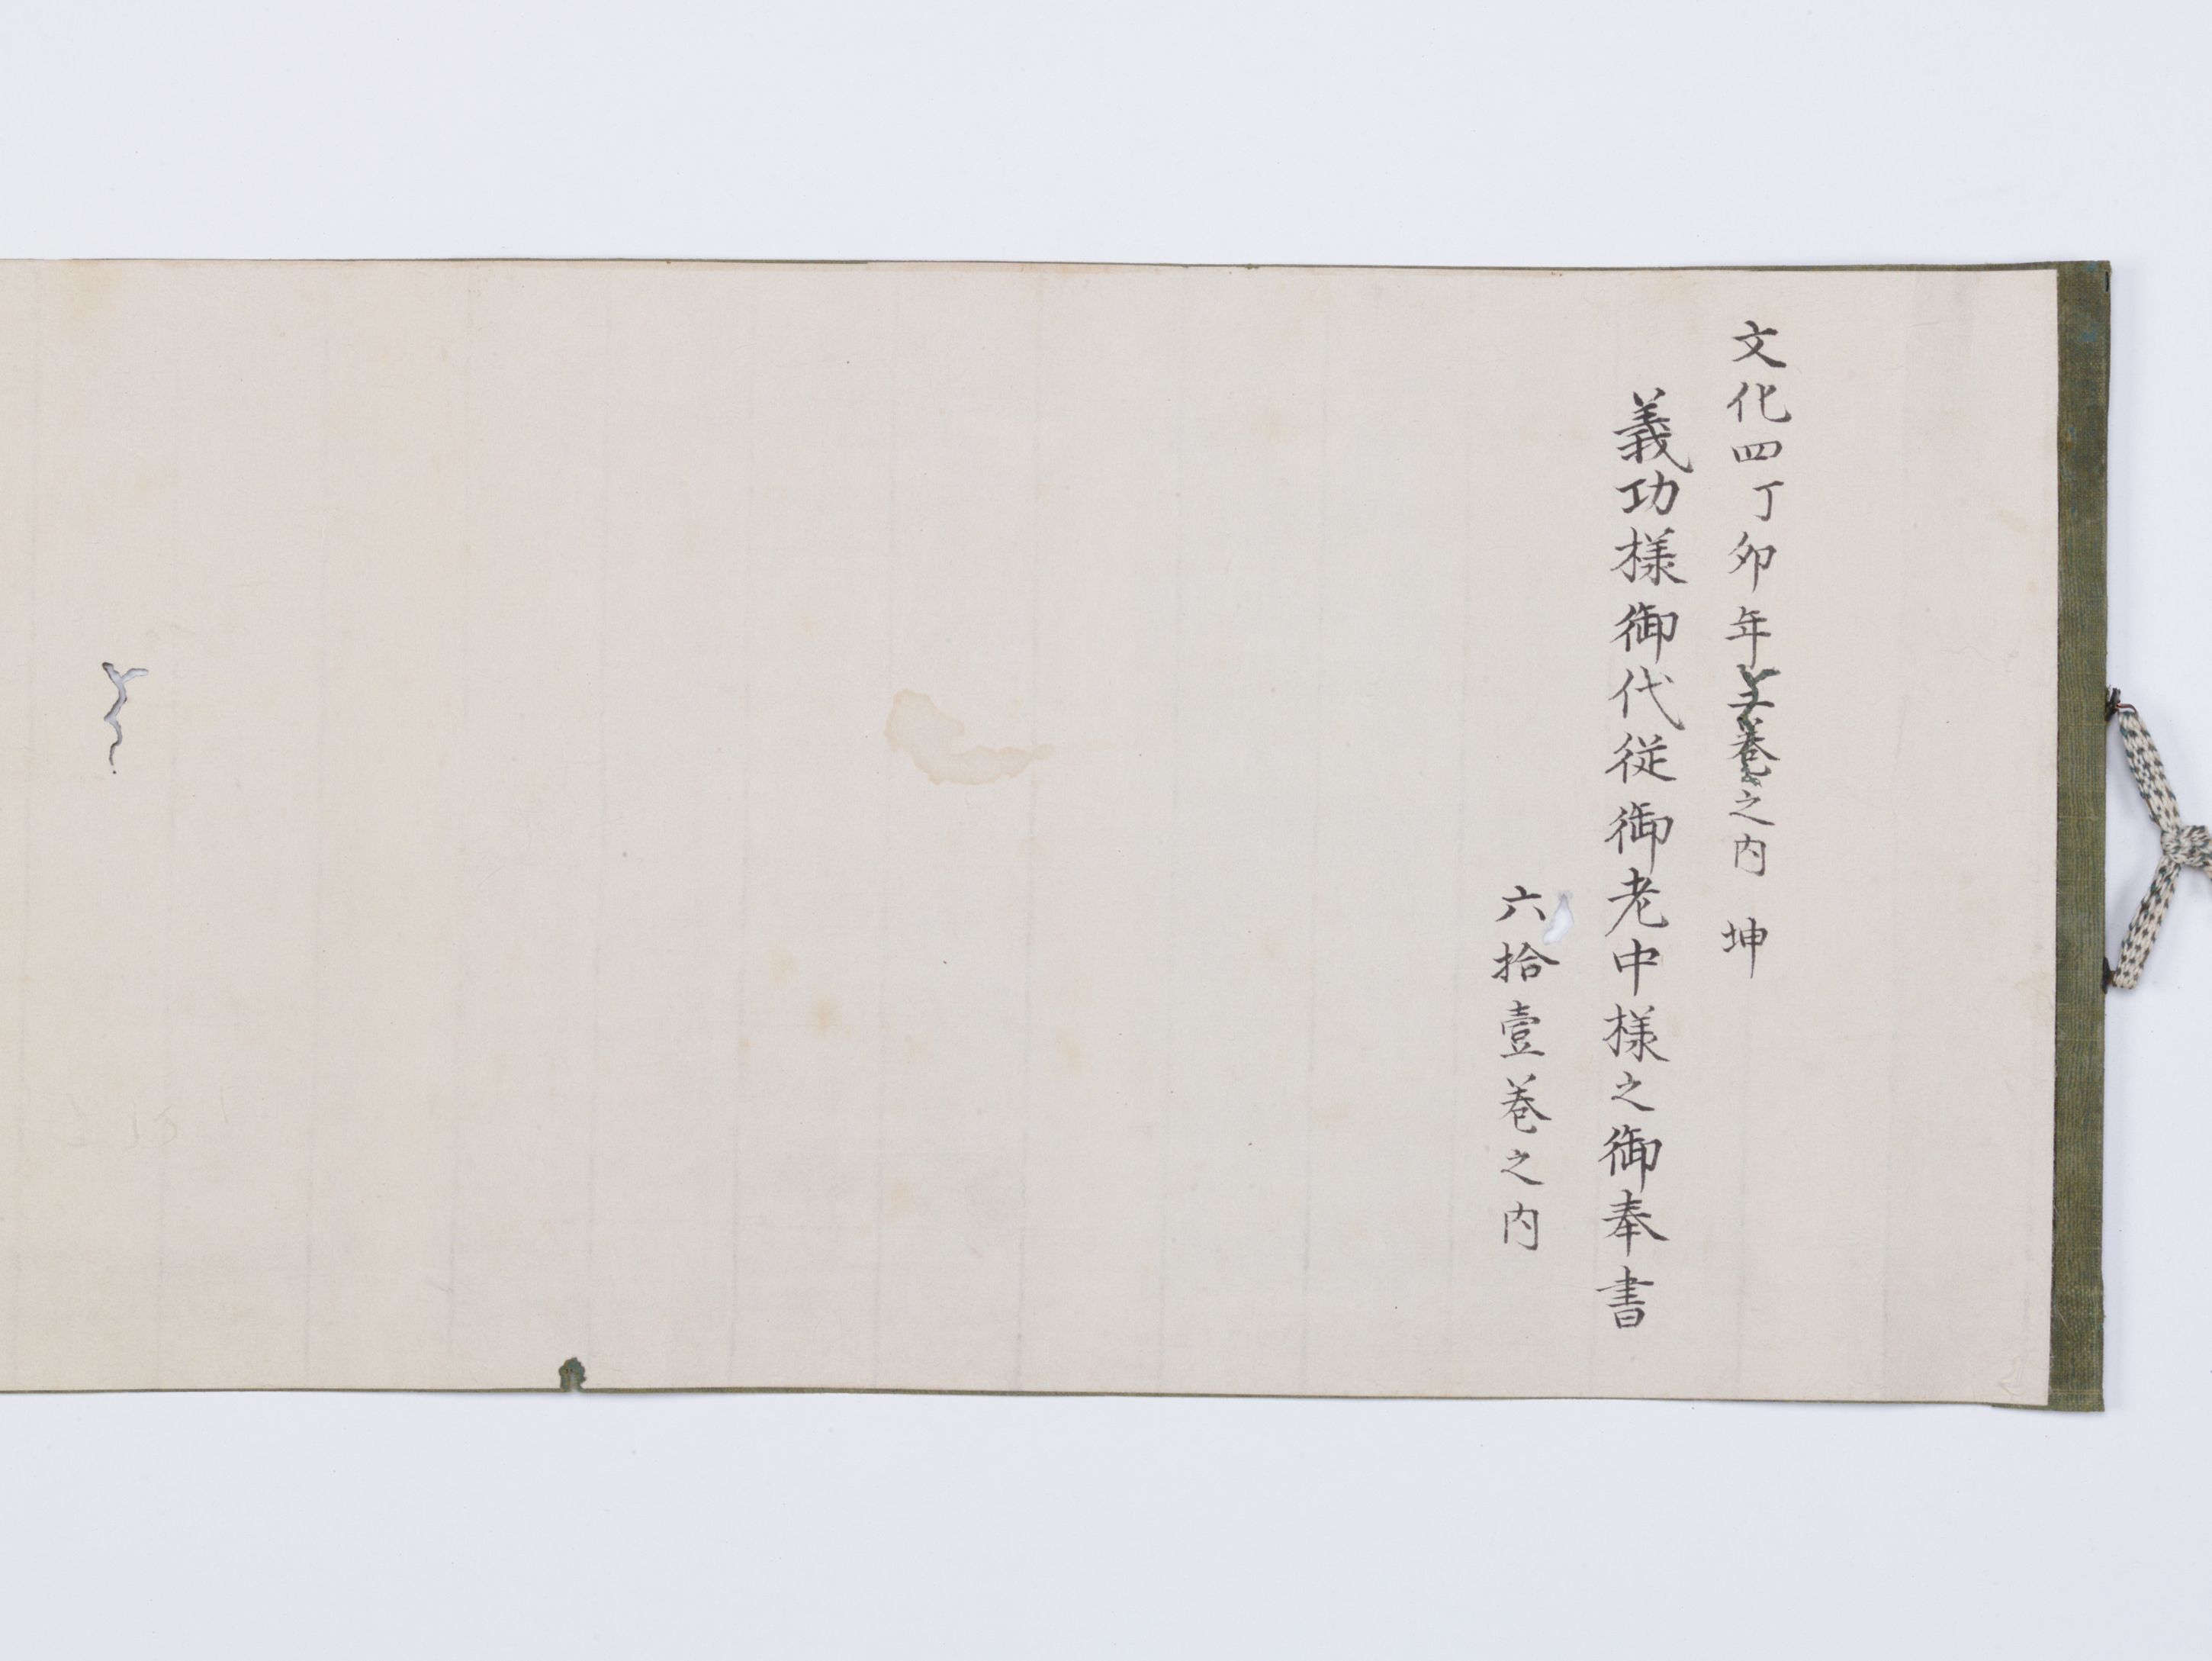 文化四丁卯年巻之内 坤
義功様御代従御老中様之御奉書
六拾壹巻之内